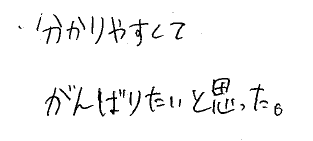 ・分かりやすくて
がんばりたいと思った。